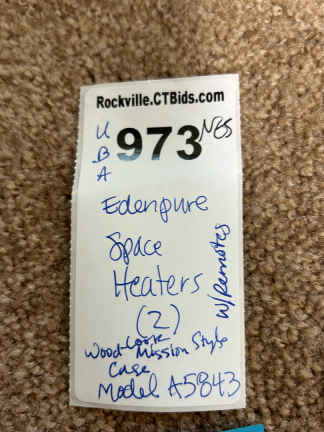 Rockville.CTBids.com
U
B
A
973 NES
Edenpure
Space
Heaters
(2)
W/Remotes
Wood-look
Mission Style
Case
Model A5843